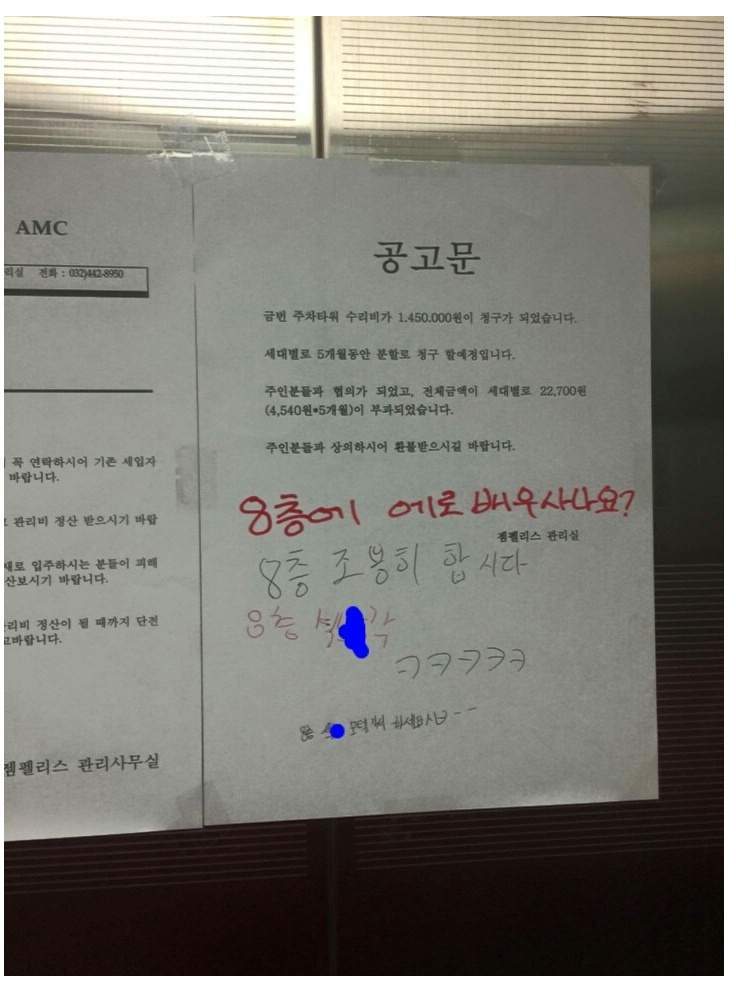 AMC
리실 전화 : 032)442-8950
꼭 연락하시어 기존 세입자
바랍니다.
관리비 정산 받으시기 바랍
새로 입주하시는 분들이 피해
산보시기 바랍니다.
리비 정산이 될 때까지 단전
고바랍니다.
젬펠리스 관리사무실
공고문
금번 주차타워 수리비가 1.450.000원이 청구가 되었습니다.
세대별로 5개월동안 분할로 청구 할예정입니다.
주인분들과 협의가 되었고, 전체금액이 세대별로 22,700원
(4,540원*5개월)이 부과되었습니다.
주인분들과 상의하시어 환불받으시길 바랍니다.
8층에 에로배우사나요?
젬펠리스 관리실
8층 조용히 합시다
8층
ㅋㅋㅋㅋㅋ
모텔가서 하세요